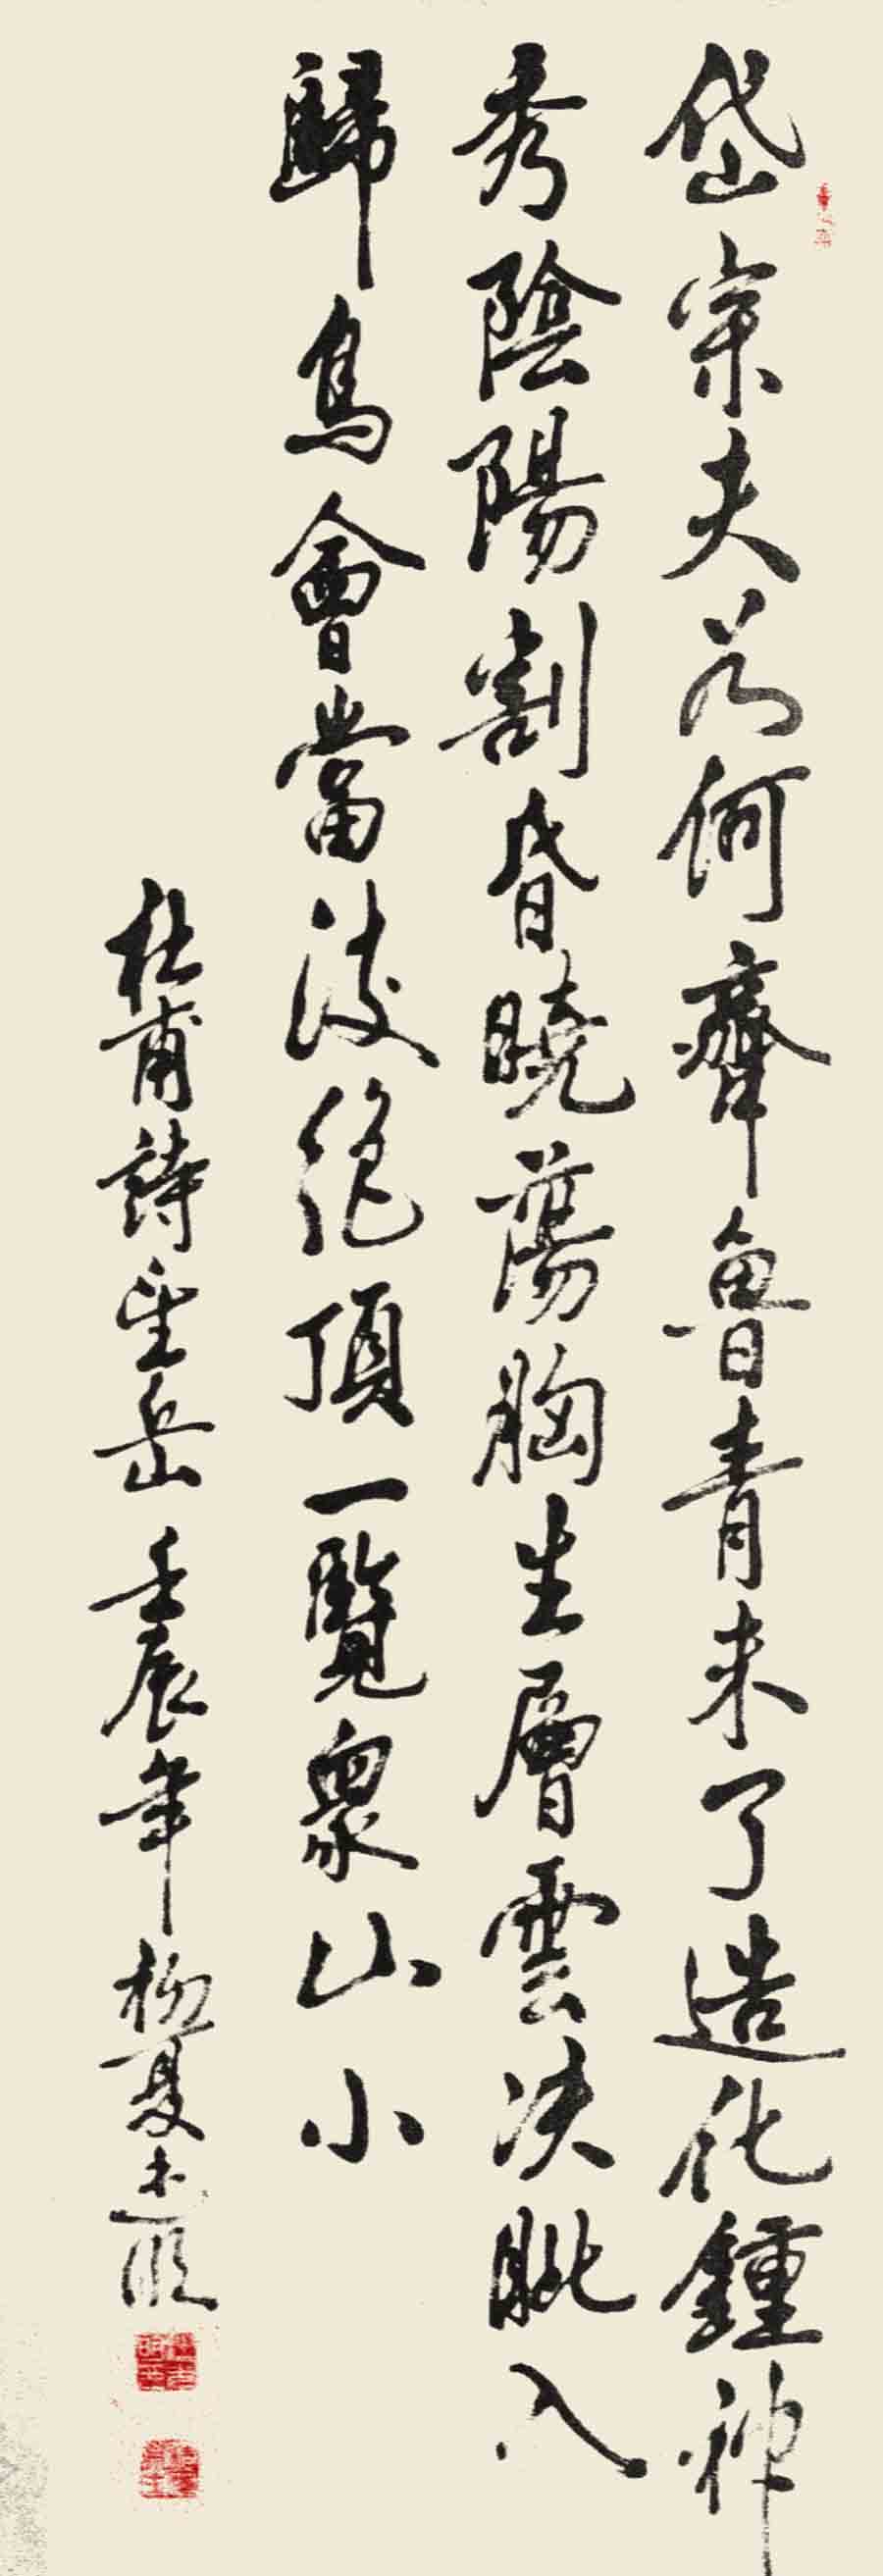 岱宗夫若何齊魯青未了造化鍾神
秀陰陽割昏曉蕩胸生層雲决眦入
歸鳥會當凌絕頂一覽眾山小
杜甫詩望岳 壬辰年